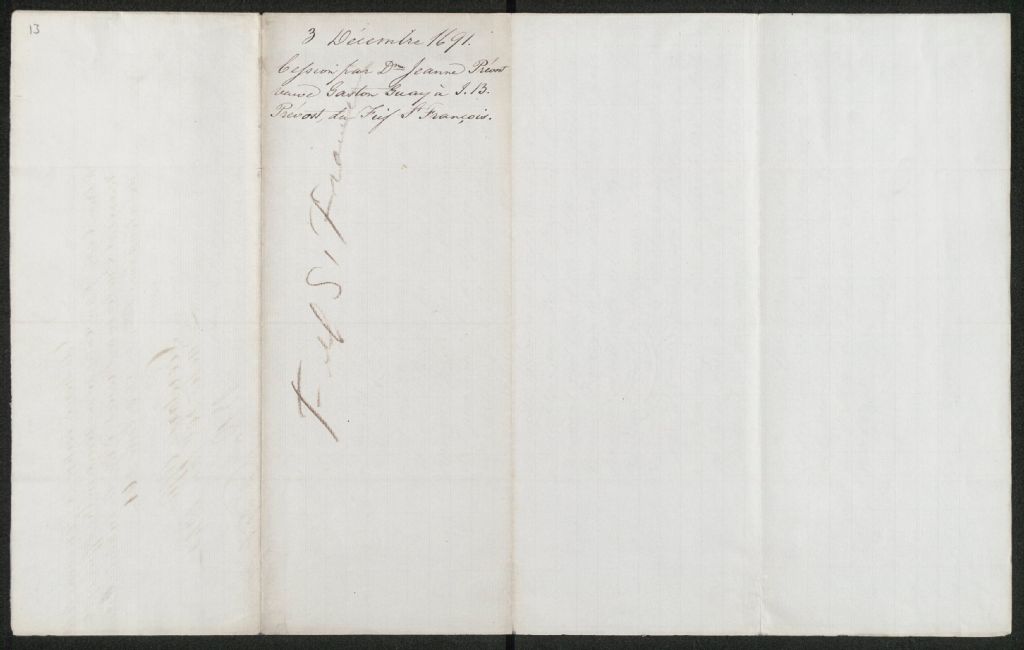 13
3 Décembre 1691.
Cession par Dme Jeanne Prévost
veuve Gaston Guay à J. B.
Prévost, du Fief St François.
Fief St Franç